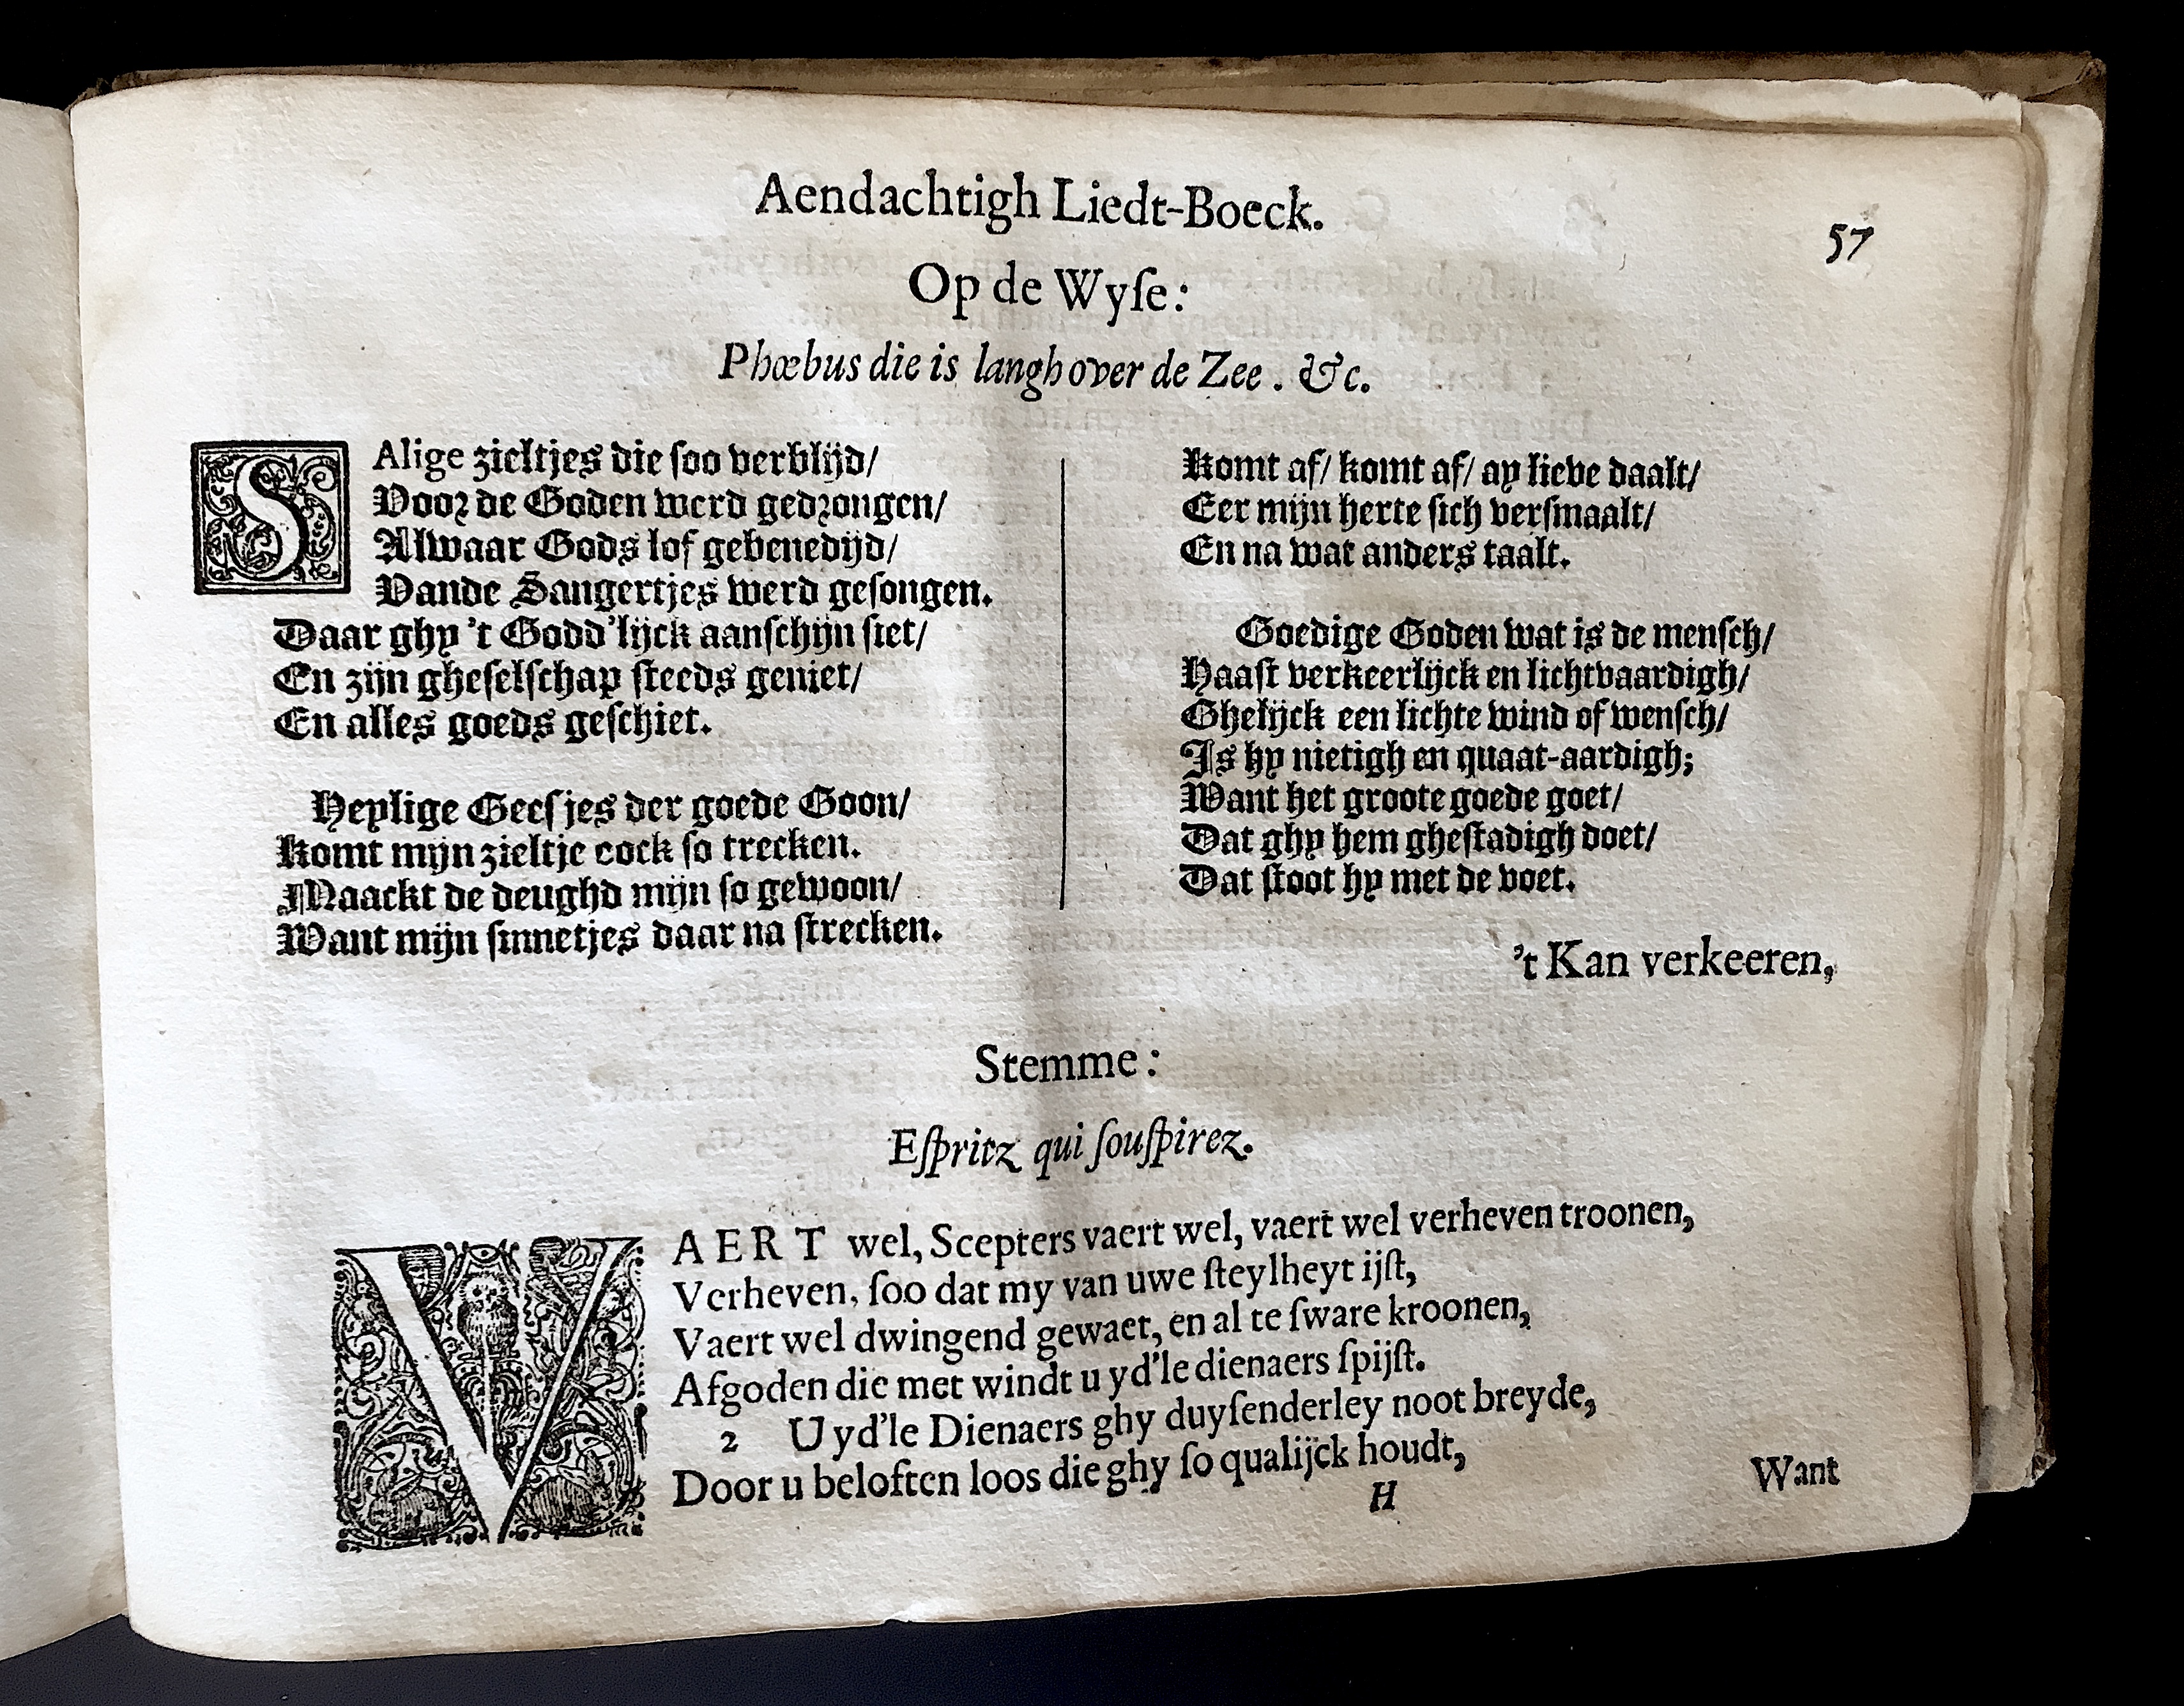 Aendachtigh Liedt-Boeck.
57
Op de Wyſe:
Phœbus die is langh over de Zee. &c.
SAlige zieltjes die ſoo verblijd/
Voor de Goden werd gedrongen/
Alwaar Gods lof gebenedijd/
Vande Sangertjes werd geſongen.
Daar ghy 't Godd'lijck aanſchijn ſiet/
En zijn gheſelſchap ſteeds geniet/
En alles goeds geſchiet.
Heylige Geeſjes der goede Goon/
Komt mijn zieltje oock ſo trecken.
Maackt de deughd mijn ſo gewoon/
Want mijn ſinnetjes daar na ſtrecken.
Komt af/ komt af/ ay lieve daalt/
Eer mijn herte ſich verſmaalt/
En na wat anders taalt.
Goedige Goden wat is de menſch/
Haaſt verkeerlijck en lichtvaardigh/
Ghelijck een lichte wind of wenſch/
Is hy nietigh en quaat-aardigh;
Want het groote goede goet/
Dat ghy hem gheſtadigh doet/
Dat ſtoot hy met de voet.
't Kan verkeeren,
Stemme:
Eſpritz qui ſouſpirez.
VAERT wel, Scepters vaert wel, vaert wel verheven troonen,
Verheven, ſoo dat my van uwe ſteylheyt ijſt,
Vaert wel dwingend gewaet, en al te ſware kroonen,
Afgoden die met windt u yd'le dienaers ſpijſt.
2 Uyd'le Dienaers ghy duyſenderley noot breyde,
Door u beloften loos die ghy ſo qualijck houdt,
H
Want